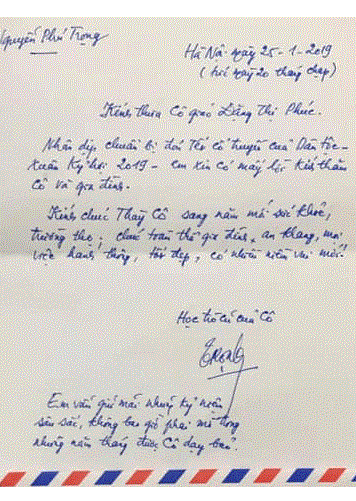 Nguyễn Phú Trọng
Hà Nội ngày 25-1-2019
(tức ngày 20 tháng chạp)
Kính thưa Cô giáo Đặng Thị Phúc.
Nhân dịp chuẩn bị đón Tết cổ truyền của Dân tộc-
Xuân Kỷ hợi 2019 - em xin có mấy lời kính thăm
Cô và gia đình.
Kính chúc Thầy Cô sang năm mới sức khỏe,
trường thọ; chúc toàn thể gia đình an khang, mọi
việc hanh thông, tốt đẹp, có nhiều niềm vui mới!
Học trò cũ của Cô
Trọng
Em vẫn giữ mãi những kỷ niệm
sâu sắc, không bao giờ phai mờ trong
những năm tháng được Cô dạy bảo.